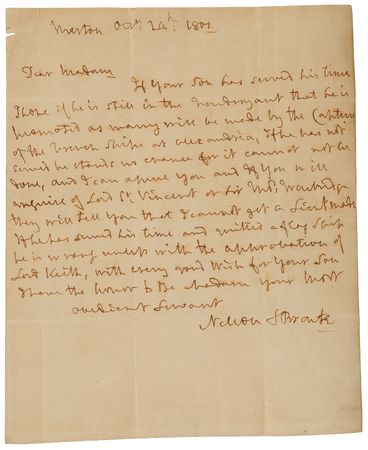 Merton Octr. 24th. 1801
Dear Madam
If Your Son has served his time
I hope if he is still in the that he is
promoted as many will be made by the Capture
of the french Ships at alexandria, if he has not
served he stands no chance for it cannot not be
done, and I can assure You and if You will
enquire of Lord St. Vincent or Sir Thos. Troubridge
they will tell You that I cannot get a Lieut. Made
if he has served his time and quitted a flag Ship
he is wrong unless with the approbation of
Lord Keith, with every good Wish for Your Son
I have the honor to Be Madam Your Most
obedient Servant
Nelson & Bronte